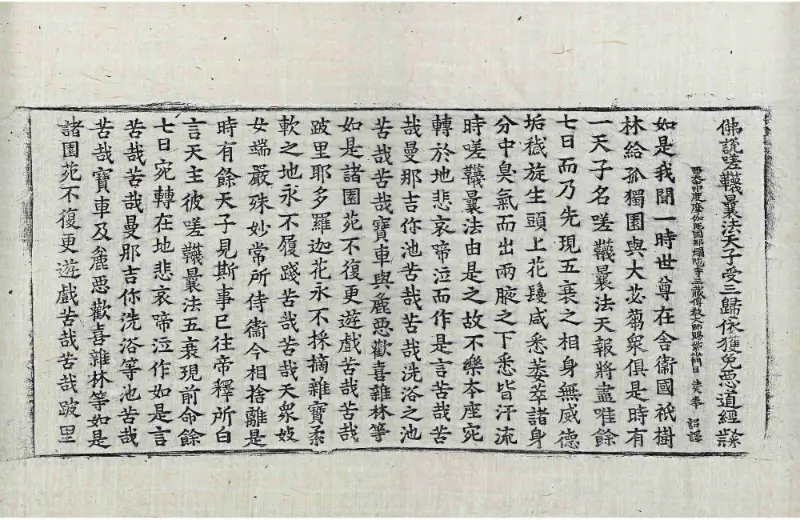 佛說嗟韈曩法天子受三歸依獲免惡道經
印度摩伽陀國那爛陀寺三藏傳教大師賜紫沙門臣 法天奉 詔譯
如是我聞一時世尊在舍衛國祇樹
林給孤獨園與大苾蒭眾俱是時有
一天子名嗟韈曩法天報將盡唯餘
七日而乃先現五衰之相身無威德
垢穢旋生頭上花鬘咸悉萎萃諸身
分中臭氣而出兩腋之下悉皆汗流
時嗟韈曩法由是之故不樂本座宛
轉於地悲哀啼泣而作是言苦哉苦
哉曼那吉你池苦哉苦哉洗浴之池
苦哉苦哉寶車與麁惡歡喜雜林等
如是諸園苑不復更遊戲苦哉苦哉
跛里耶多羅迦花永不採摘雜寶柔
軟之地永不履踐苦哉苦哉天眾妓
女端嚴殊妙常所侍衛今相捨離是
時有餘天子見斯事已往帝釋所白
言天主彼嗟韈曩法五衰現前命餘
七日宛轉在地悲哀啼泣作如是言
苦哉苦哉曼那吉你洗浴等池苦哉
苦哉寶車及麁惡歡喜雜林等如是
諸園苑不復更遊戲苦哉苦哉跛里